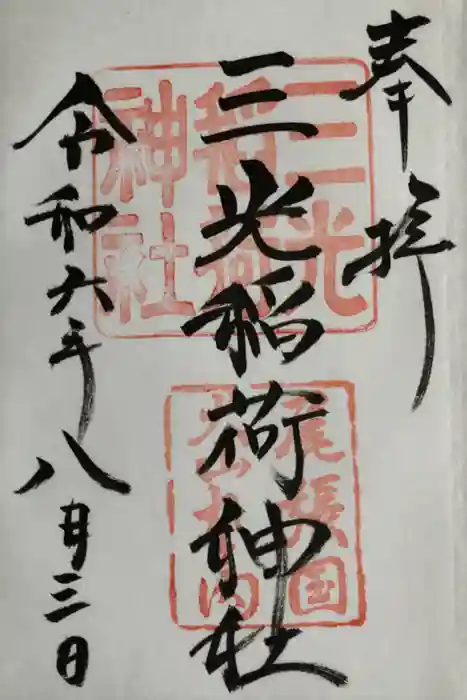 奉拝
三光稲荷神社
令和六年八月三日
三光
稲荷
神社
尾張国
犬山城内